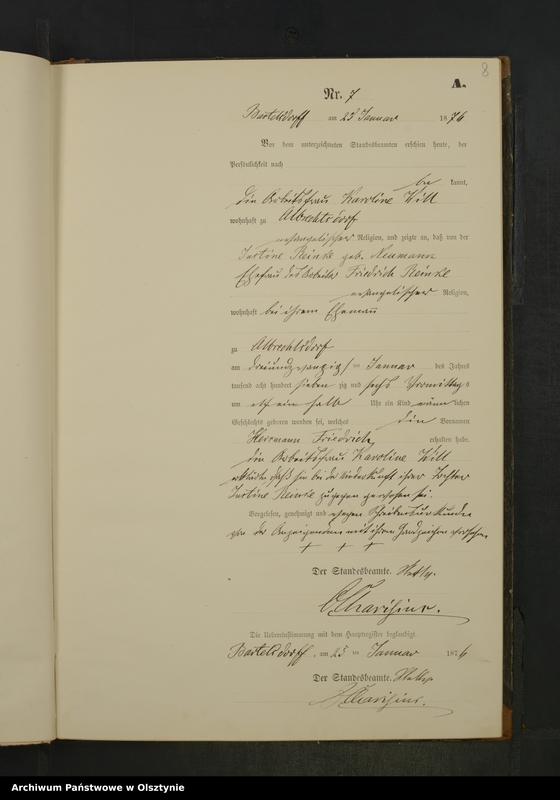 8
A.
Nr. 7
Bartelsdorff am 25 Januar 1876
Vor dem unterzeichneten Standesbeamten erschien heute, der
Persönlichkeit nach
be kannt,
die Arbeitsfrau Karoline Will
wohnhaft zu Albrechtsdorf
evangelischer Religion, und zeigte an, daß von der
Justine Reinke geb. Neumann
Ehefrau des Arbeiter Friedrich Reinke
evangelischer Religion,
wohnhaft bei ihrem Ehemann
zu Albrechtsdorf
am dreiundzwanzig ten Januar des Jahres
tausend acht hundert sieben zig und sechs Vormittags
um elf ein halb Uhr ein Kind männ lichen
Geschlechts geboren worden sei, welches den Vornamen
Herrmann Friedrich erhalten habe.
die Arbeitsfrau Karoline Will
erklärte, daß sie bei der Niederkunft ihrer Tochter
Justine Reinke zugegen gewesen sei.
Vorgelesen, genehmigt und wegen Schreibensunkunde
von der Anzeigenden mit ihrem Handzeichen versehen
+ + +
Der Standesbeamte.
Die Uebereinstimmung mit dem Hauptregister beglaubigt
Bartelsdorff, am 25 ten Januar 1876
Der Standesbeamte.
Archiwum Państwowe w Olsztynie